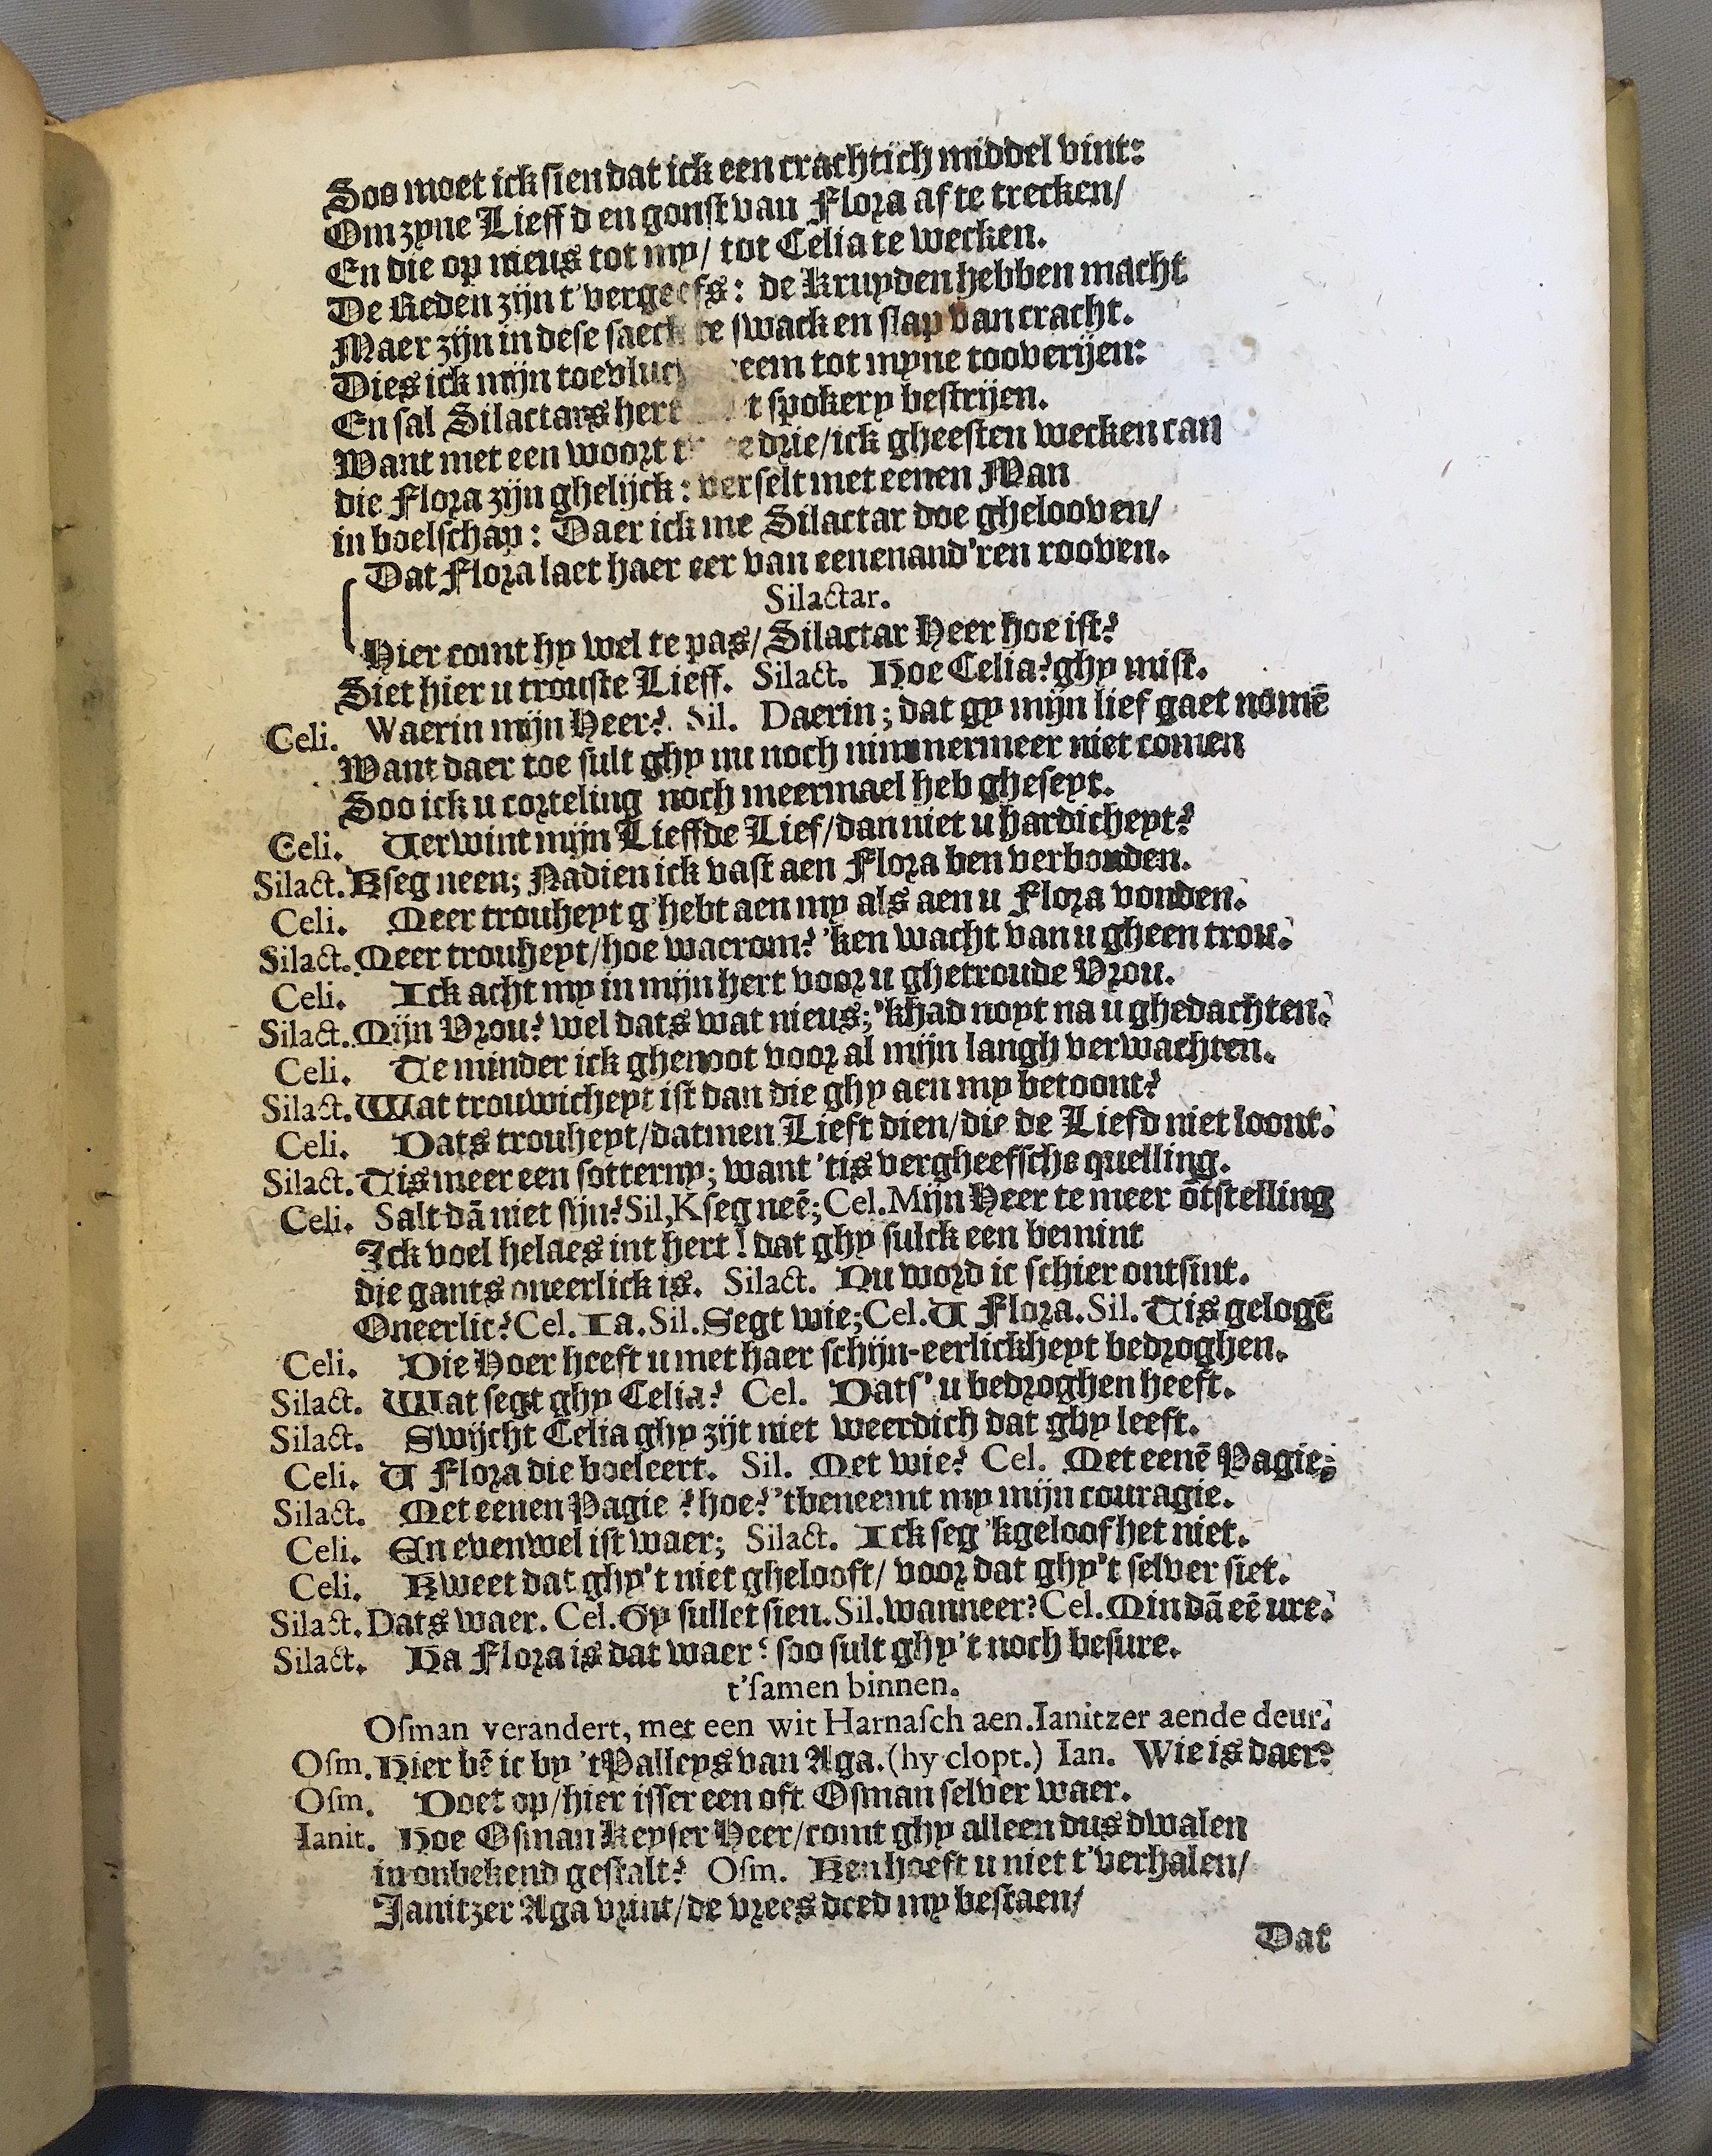 Soo moet ick sien dat ick een crachtich middel vint:
Om zyne Lieff d en gonst van Flora af te trecken/
En die op nieus tot my/ tot Celia te wecken.
De Reden zijn t'vergeefs: de Kruyden hebben macht
Maer zijn in dese saeck te swack en slap van cracht.
Dies ick mijn toevlucht neem tot myne tooverijen:
En sal Silactars hert t spokery bestrijen.
Want met een woort drie/ick gheesten wecken can
die Flora zijn ghelijck: verselt met eenen Man
in boelschap: Daer ick me Silactar doe ghelooven/
Dat Flora laet haer eer van eenen and'ren rooven.
Silactar.
Hier comt hy wel te pas/ Silactar Heer hoe ist?
Siet hier u trouste Lieff. Silact. Hoe Celia? ghy mist.
Celi. Waerin mijn Heer? Sil. Daerin; dat gy mijn lief gaet nomē
Want daer toe sult ghy nu noch nimmermeer niet comen
Soo ick u corteling noch meermael heb gheseyt.
Celi. Verwint mijn Lieffde Lief/dan niet u hardicheyt?
Silact. Kseg neen; Nadien ick vast aen Flora ben verbonden.
Celi. Meer trouheyt g'hebt aen my als aen u Flora vonden.
Silact. Meer trouheyt/hoe waerom? 'ken wacht van u gheen trou.
Celi. Ick acht my in mijn hert voor u ghetroude Vrou.
Silact. Mijn Vrou? wel dats wat nieus; 'khad noyt na u ghedachten.
Celi. Te minder ick ghenoot voor al mijn langh verwachten.
Silact. Wat trouwicheyt ist dan die ghy aen my betoont?
Celi. Dats trouheyt/datmen Lieft dien/die de Liefd niet loont.
Silact. Tis meer een sotterny; want 'tis vergheefsche quelling.
Celi. Salt dā niet sijn? Sil, Kseg neē; Cel. Mijn Heer te meer ōtstelling
Ick voel helaes int hert! dat ghy sulck een bemint
die gants oneerlick is. Silact. Nu word ic schier ontsint.
Oneerlic? Cel. Ia. Sil. Segt wie; Cel. U Flora. Sil. Tis gelogē
Celi. Die Hoer heeft u met haer schijn-eerlickheyt bedroghen.
Silact. Wat segt ghy Celia? Cel. Dats' u bedroghen heeft.
Silact. Swijcht Celia ghy zijt niet weerdich dat ghy leeft.
Celi. U Flora die boeleert. Sil. Met wie? Cel. Met eenē Pagie;
Silact. Met eenen Pagie? hoe? 'tbeneemt my mijn couragie.
Celi. En evenwel ist waer; Silact. Ick seg 'kgeloof het niet.
Celi. Kweet dat ghy't niet ghelooft/ voor dat ghy't selver siet.
Silact. Dats waer. Cel. Gy sullet sien. Sil. wanneer? Cel. Min dā eē ure.
Silact. Ha Flora is dat waer? soo sult ghy't noch besure.
t'samen binnen.
Osman verandert, met een wit Harnasch aen. Ianitzer aende deur.
Osm. Hier bē ic by 't Palleys van Aga. (hy clopt.) Ian. Wie is daer?
Osm. Doet op/hier isser een oft Osman selver waer.
Ianit. Hoe Osman Keyser Heer/comt ghy alleen dus dwalen
in onbekend gestalt? Osm. Ken hoeft u niet t'verhalen/
Janitzer Aga vrint/de vrees deed my bestaen/
Dat